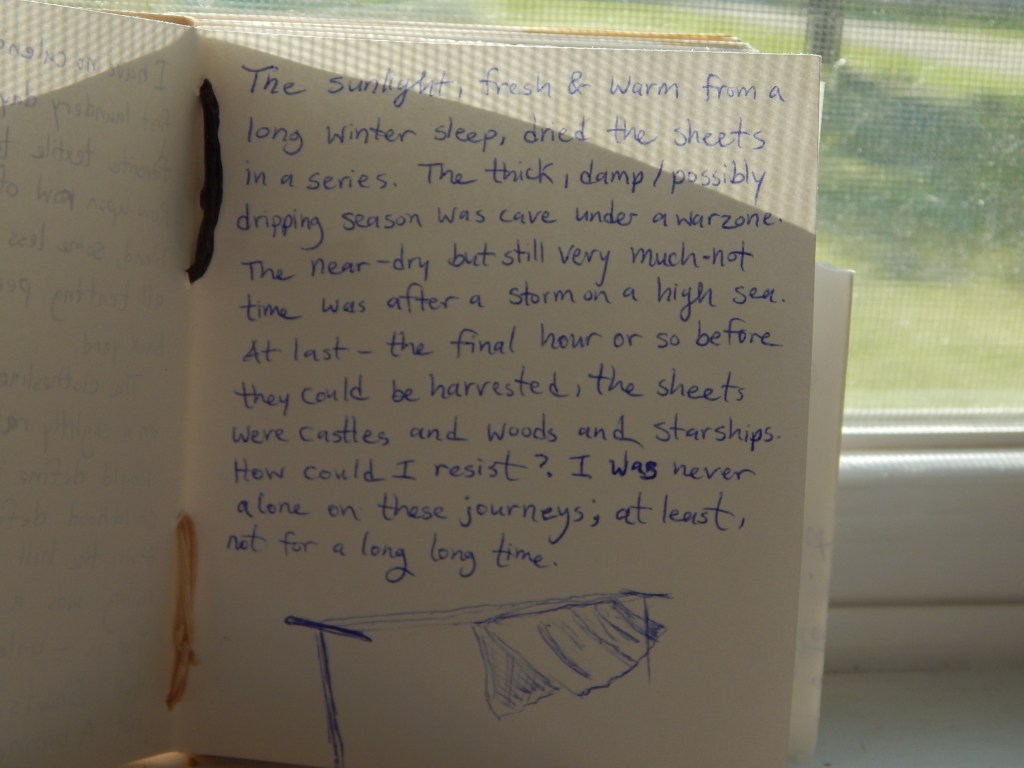 The sunlight, fresh & warm from a
long winter sleep, dried the sheets
in a series. The thick, damp/possibly
dripping season was cave under a warzone.
The near-dry but still very much-not
time was after a storm on a high sea.
At last - the final hour or so before
they could be harvested, the sheets
were castles and woods and starships.
How could I resist? I was never
alone on these journeys; at least,
not for a long long time.